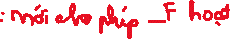 : mới cho phép _F hoạt